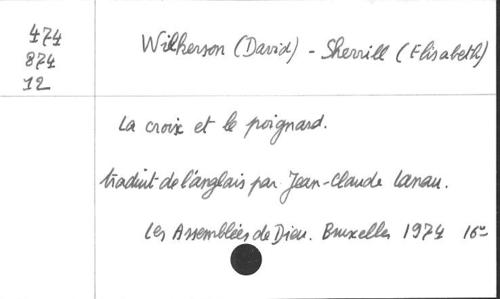 474
874
12
Wilkerson (David) - Sherrill (Elisabeth)
La croix et le poignard.
traduit de l'anglais par Jean-Claude Lanau.
Les Assemblées de Dieu. Bruxelles 1974 16°